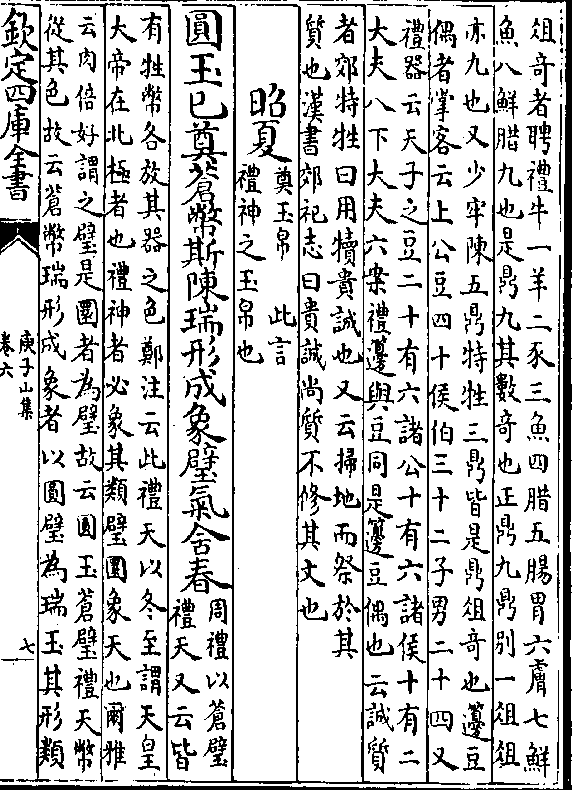 俎奇者聘禮牛一羊二豕三魚四腊五腸胃六膚七鮮
魚八鮮腊九也是鼎九其數奇也正鼎九鼎別一俎俎
亦九也又少牢陳五鼎特牲三鼎皆是鼎俎奇也籩豆
偶者掌客云上公豆四十侯伯三十二子男二十四又
禮器云天子之豆二十有六諸公十有六諸侯十有二
大夫八下大夫六案禮籩與豆同是籩豆偶也云誠質
者郊特牲曰用犢貴誠也又云掃地而祭於其
質也漢書郊祀志曰貴誠尚質不修其文也
昭夏
奠玉帛 此言
禮神之玉帛也
圓玉已奠蒼幣斯陳瑞形成象璧氣含春
周禮以蒼璧
禮天又云皆
有牲幣各放其器之色鄭注云此禮天以冬至謂天皇
大帝在北極者也禮神者必象其類璧圓象天也爾雅
云肉倍好謂之璧是圜者為璧故云圓玉蒼璧禮天幣
從其色故云蒼幣瑞形成象者以圓璧為瑞玉其形類
欽定四庫全書
庾子山集
卷六
七